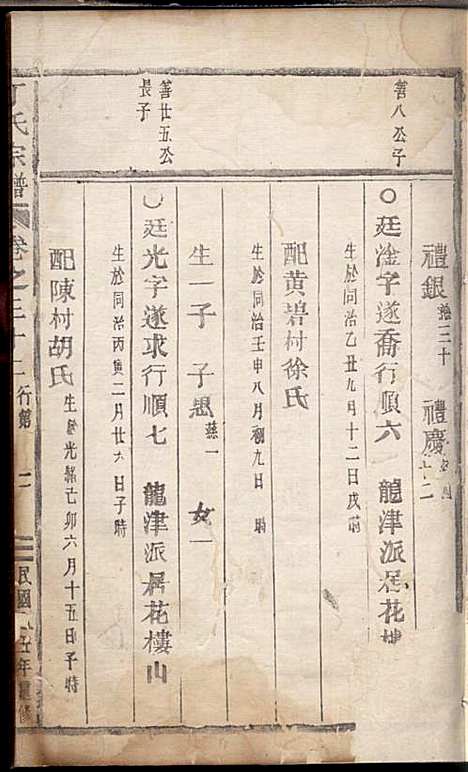 禮銀 三十 禮慶
善八公子
○廷淦字遂喬行順六 龍津派居花樓
生於同治乙丑九月十二日戌時
配黃碧村徐氏
生於同治壬申八月初九日 時
生一子 子思 女一
善廿五公
長子
○廷光字遂求行順七 龍津派居花樓山
生於同治丙寅二月廿六日子時
配陳村胡氏 生於光緒己卯六月十五日子時
丁氏宗譜 卷之三十二 行第 民國 年重修